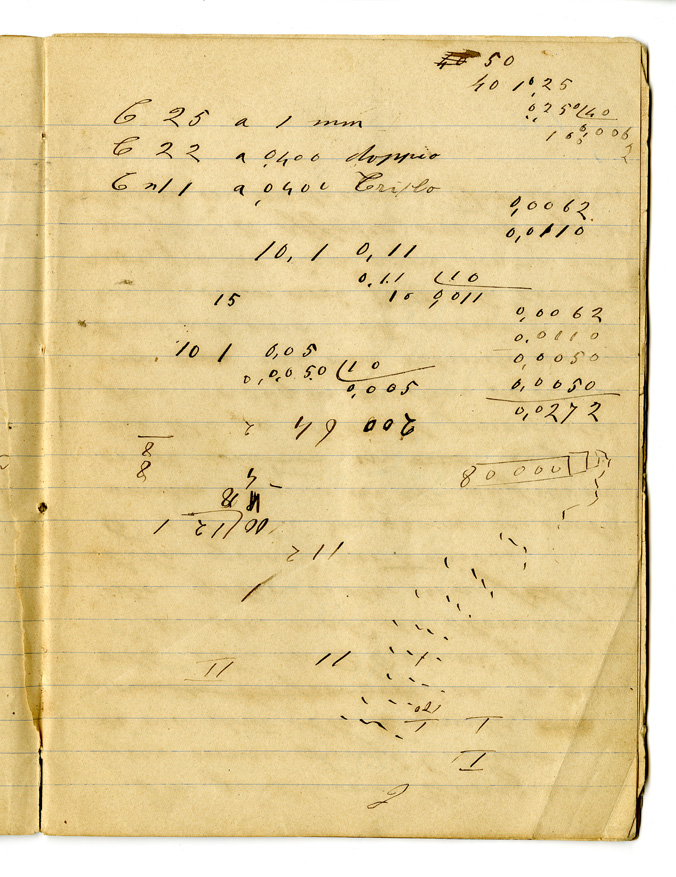 50
40 1,25
0,250 40
100 0,006
2
C 25 a 1 mm
C 22 a 0,400 doppio
C n 11 a 0,400 Triplo
0,0062
0,0110
10,1 0,11
0,11 10
10 0,011
15
0,0062
0,0110
0,0050
0,0050
0,0272
10 1 0,05
0,0050 10
0,005
200 64 2
8
8
80000
4
112
1
112
II 11
I I
I
2